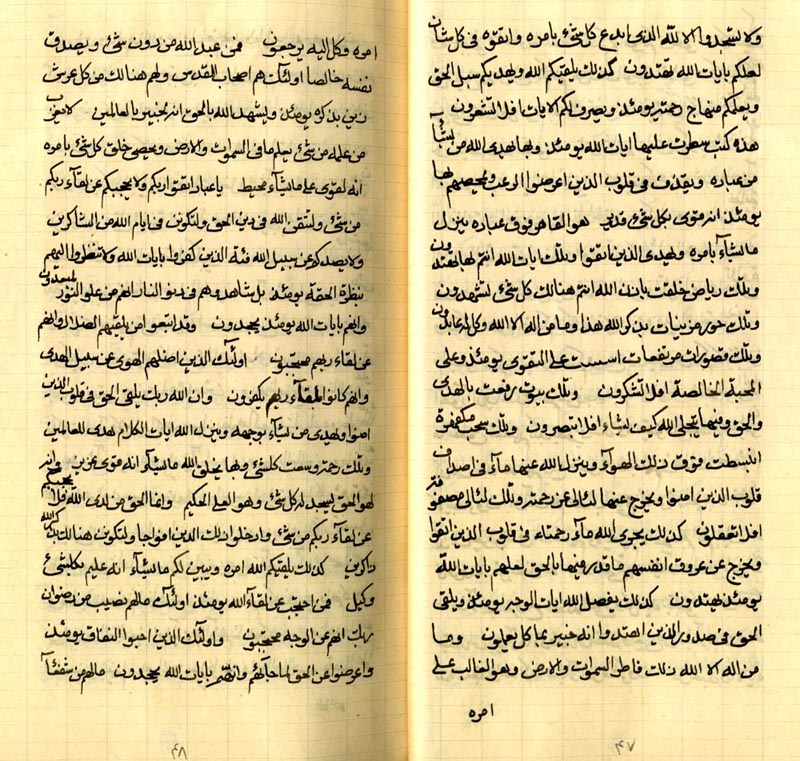 ولا تسجدوا الا لله الذي ابدع كل شئ بامره واتقوه في كل شان
لعلكم بايات الله تهتدون كذلك يلقيكم الله ويهديكم سبل الحق
ويعلمكم منهاج رحمته يومئذ ويصرف لكم الايات افلا تشعرون
هذه كتب سطرت عليها ايات الله يومئذ وبها يهدي الله من يشآء
من عباده ويقذف في قلوب الذين اعرضوا الرعب ويحصيهم بها
يومئذ انه لقوي بكل شئ قدير هو القاهر فوق عباده ينزل
ما يشآء بامره ويهدي الذين اتقوا وتلك ايات الله انتم بها تهتدون
وتلك رياض خلقت باذن الله انتم هنالك كل شئ تشهدون
وتلك حور مزينات بذكر الله هذا وما من اله الا الله وكل له عابدون
وتلك قصورات مرتفعات اسست على التقوى يومئذ وعلى
المحبة الخالصة افلا تشكرون وتلك بيوت رفعت بالهدى
والحق وفيها يتجلى الله كيف يشاء افلا تبصرون وتلك سحب مكفهرة
انبسطت فوق ذلك الهوآء وينزل الله عنها مآء في اصداف
قلوب الذين امنوا ويخرج عنها لئالئ عن رحمته وتلك لئالئ مصفوفة
افلا تعقلون كذلك يجرى الله مآء رحمتاء في قلوب الذين اتقوا
ويخرج عن عروق انفسهم ما قدر فيها بالحق لعلهم بايات الله
يومئذ يهتدون كذلك يفصل الله ايات الوجه يومئذ ويلقي
الحق في صدور الذين اهتدوا انه خبير بما كل يعلمون وما
من اله الا الله ذلك فاطر السموات والارض وهو الغالب على
امره
۴۷
امره وكل اليه يرجعون فمن عبد الله من دون شئ ويصدق
نفسه خالصا اولئك هم اصحاب القدس ولهم هنالك من كل عرش
زين بذكره يومئذ ويشهد الله بالحق انه لخبير بالعالمين لا يعزب
من علمه من شئ يعلم ما في السموات والارض ويحصي خلق كل شئ بامره
انه لقوى على ما يشآء محيط يا عباد اتقوا ربكم ولا يحجبكم عن لقآء ربكم
من شئ ولتتقن الله في دين الحق ولتكونن في ايام الله من الشاكرين
ولا يصدكم عن سبيل الله فئة الذين كفروا بايات الله ولا تنظروا اليهم
بنظرة الحقة يومئذ بل شاهدوهم في دنو النار انهم من علو النور لمبعدون
وانهم بايات الله يومئذ يجحدون وقد اتبعوا من يلقيهم الضلالة وانهم
عن لقاء ربهم محتجبون اولئك الذين اضلهم الهوى عن سبيل الهدى
وانهم كانوا بلقآء ربهم يكفرون وان الله ربك يلقي الحق في قلوب الذين
امنوا ويهدي من يشآء بوجهه وينزل الله ايات الكلام هدى للعالمين
وتلك رحمة وسعت كلشئ وبها يخلق الله ما يشآء انه قوى عزيز وانه
لهو الحق يسجد له كل شئ وهو العلي الحكيم وانما الحق من لدى الله فلا يحجبكم
عن لقآء ربكم من شئ وادخلوا ذلك الدين افواجا ولتكونن هنالك بذكر الله
ذاكرين كذلك يلقيكم الله امره ويبين لكم ما يشآء انه عليم بكلشئ
وكيل فمن احتجب عن لقآء الله يومئذ اولئك ما لهم نصيب من رضوان
ربك انهم عن الوجه محتجبون واولئك الذين احبوا النفاق يومئذ
واعرضوا عن الحق لما جآئهم وانهم بايات الله يجحدون ما لهم من شفعآء
۴۸